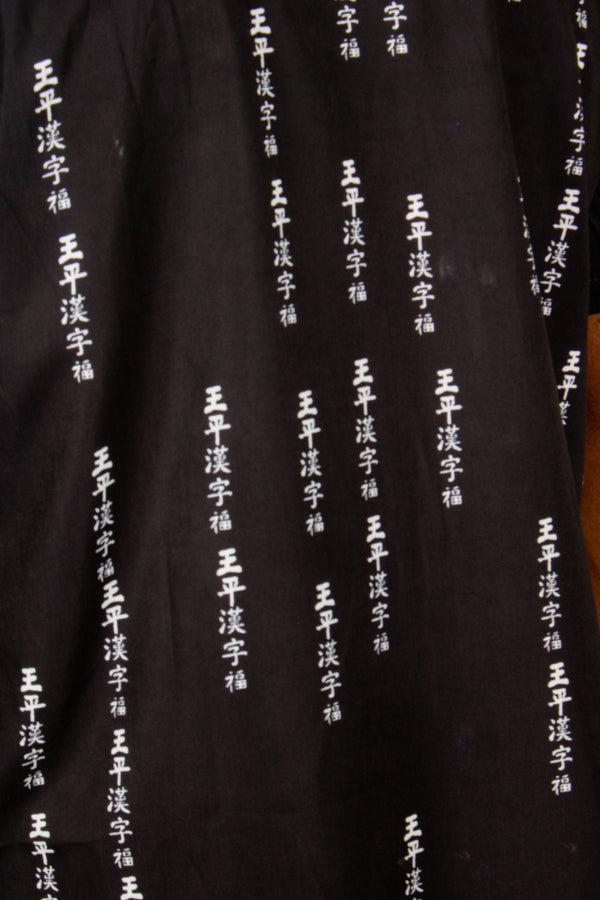 字福
字福
王平漢字福
王平漢字福
王平漢字福
王平漢字福
王平漢字福
王平漢字福
王平漢字福
王平漢字福
王平漢
王平漢字福
王平漢字福
王平漢字福
王平漢字福
王平漢字福
王平漢字福
王平漢字福
王平漢字福
王平漢字福
王平漢字福
王平漢字福
王平漢字福
王平漢字福
王平漢
王平漢
王